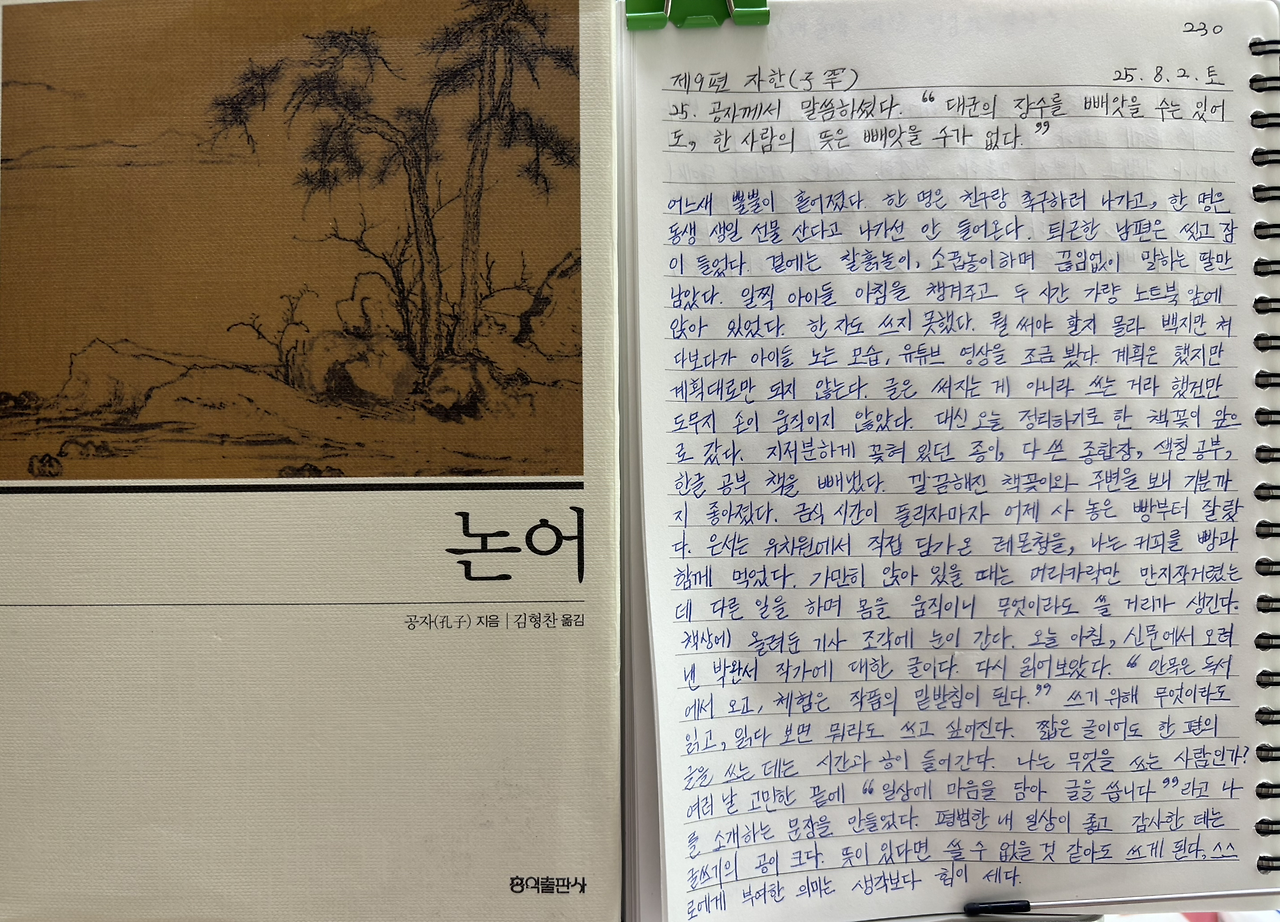 논어
공자(孔子) 지음 | 김형찬 옮김
홍익출판사
230
제9편 자한(子罕) 25. 8. 2. 토
25. 공자께서 말씀하셨다. “대군의 장수를 빼앗을 수는 있어
도, 한 사람의 뜻은 빼앗을 수가 없다.”
어느새 뿔뿔이 흩어졌다. 한 명은 친구랑 축구하러 나가고, 한 명은
동생 생일 선물 산다고 나가선 안 들어온다. 퇴근한 남편은 씻고 잠
이 들었다. 곁에는 찰흙놀이, 소꿉놀이하며 끊임없이 말하는 딸만
남았다. 일찍 아이들 아침을 챙겨주고 두 시간 가량 노트북 앞에
앉아 있었다. 한 자도 쓰지 못했다. 뭘 써야 할지 몰라 백지만 쳐
다보다가 아이들 노는 모습, 유튜브 영상을 조금 봤다. 계획은 했지만
계획대로만 되지 않는다. 글은 써지는 게 아니라 쓰는 거라 했건만
도무지 손이 움직이지 않았다. 대신 오늘 정리하기로 한 책꽂이 앞으
로 갔다. 지저분하게 꽂혀 있던 종이, 다 쓴 종합장, 색칠 공부,
한글 공부 책을 빼냈다. 깔끔해진 책꽂이와 주변을 보니 기분까
지 좋아졌다. 금식 시간이 풀리자마자 어제 사 놓은 빵부터 잘랐
다. 은서는 유치원에서 직접 담가온 레몬청을, 나는 커피를 빵과
함께 먹었다. 가만히 앉아 있을 때는 머리카락만 만지작거렸는
데 다른 일을 하며 몸을 움직이니 무엇이라도 쓸 거리가 생긴다.
책상에 올려둔 기사 조각에 눈이 간다. 오늘 아침, 신문에서 오려
낸 박완서 작가에 대한 글이다. 다시 읽어보았다. “안목은 독서
에서 오고, 체험은 작품의 밑받침이 된다.” 쓰기 위해 무엇이라도
읽고, 읽다 보면 뭐라도 쓰고 싶어진다. 짧은 글이어도 한 편의
글을 쓰는 데는 시간과 공이 들어간다. 나는 무엇을 쓰는 사람인가?
여러 날 고민한 끝에 “일상에 마음을 담아 글을 씁니다”라고 나
를 소개하는 문장을 만들었다. 평범한 내 일상이 좋고 감사한 데는
글쓰기의 공이 크다. 뜻이 있다면 쓸 수 없을 것 같아도 쓰게 된다. 스스
로에게 부여한 의미는 생각보다 힘이 세다.